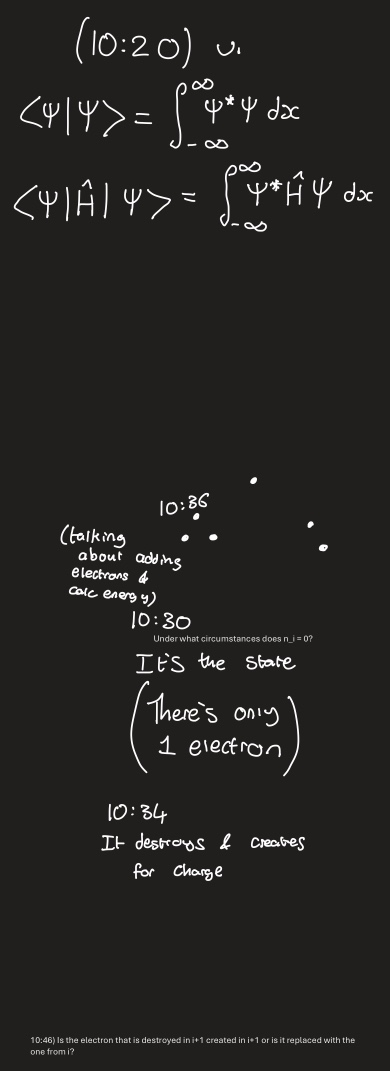 (10:20) u.
⟨Ψ|Ψ⟩ = ∫_{-∞}^{∞} Ψ*Ψ dx
⟨Ψ|Ĥ|Ψ⟩ = ∫_{-∞}^{∞} Ψ*ĤΨ dx
10:36
(talking
about adding
electrons &
calc energy)
10:30
Under what circumstances does n_i = 0?
It's the state
(There's only
1 electron)
10:34
It destroys & creates
for charge
10:46) Is the electron that is destroyed in i+1 created in i+1 or is it replaced with the
one from i?